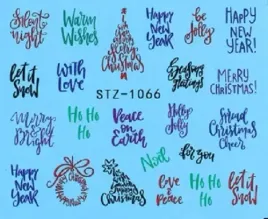 Silent night
Warm Wishes
Happy New Year
be Jolly
HAPPY NEW YEAR!
let it Snow
with Love
Seasons Greetings
MERRY CHRISTMAS!
STZ-1066
Merry & Bright
Ho Ho Ho
Peace on Earth
Holly Jolly
Spread Christmas Cheer
Noel
for you
Happy New Year
Merry Christmas
love Peace
Ho Ho Ho
let it Snow